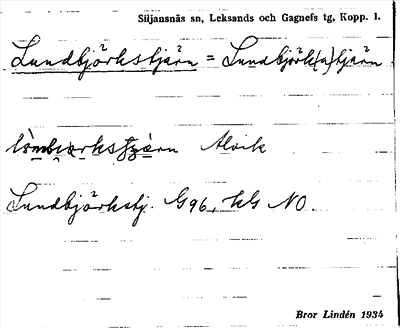 Siljansnäs sn, Leksands och Gagnefs tg, Kopp. l.
Lundbjörkstjärn = Lundbjörk(s)tjärn
Alvik
Lundbjörkstj. G96, kG NO.
Bror Lindén 1934